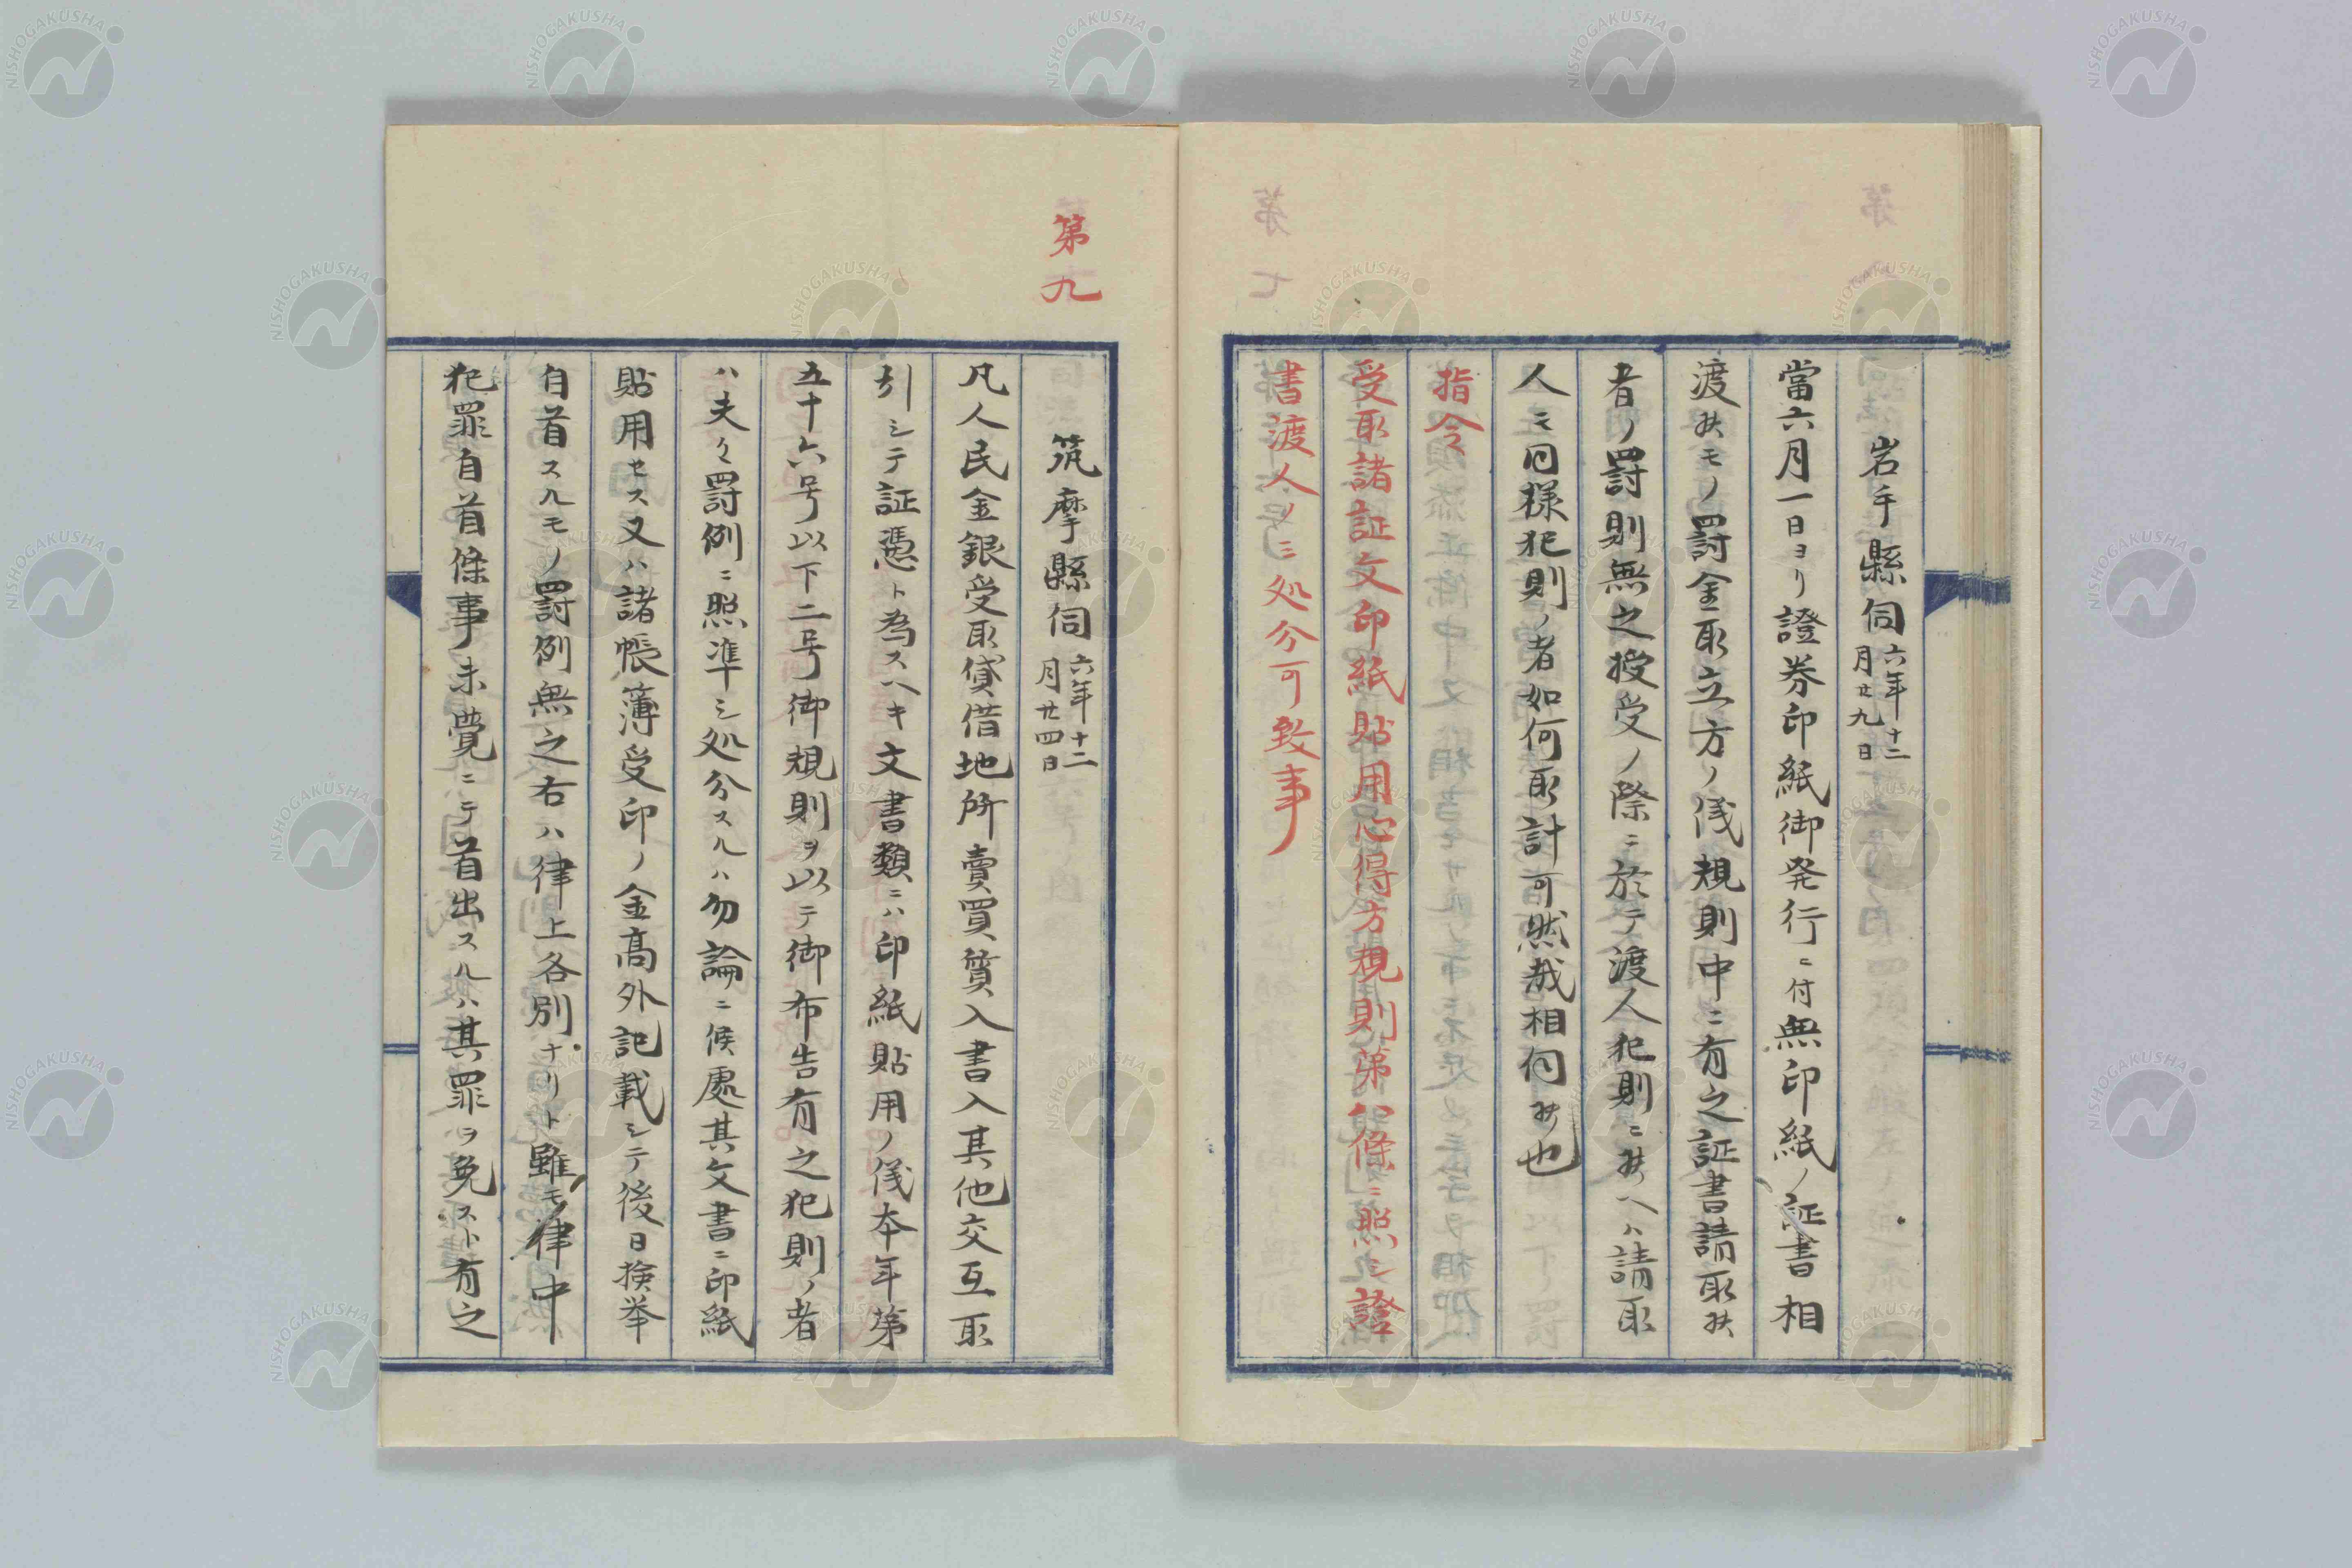 岩手縣伺 六年十二月廿九日
當六月一日ヨリ證券印紙御発行ニ付無印紙ノ証書相
渡候モノ罰金取立方ノ儀規則中ニ有之証書請取候
者ノ罰則無之授受ノ際ニ於テ渡人犯則ニ候ヘハ請取
人モ同様犯則ノ者如何取計可然哉相伺候也
指令
受取諸証文印紙貼用心得方規則第八條ニ照シ證
書渡人ノミ処分可致事
第九
筑摩縣伺 六年十二月廿四日
凡人民金銀受取貸借地所賣買質入書入其他交互取
引シテ証憑ト為スヘキ文書類ニハ印紙貼用ノ儀本年第
五十六号以下二号御規則ヲ以テ御布告有之犯則ノ者
ハ夫々罰例ニ照準シ処分スルハ勿論ニ候處其文書ニ印紙
貼用セス又ハ諸帳簿受印ノ金高外記載シテ後日検挙
自首スルモノ罰例無之右ハ律上各別ナリト雖モ律中
犯罪自首條事未覺ニテ首出スルハ其罪ヲ免スト有之
NISHOGAKUSHA